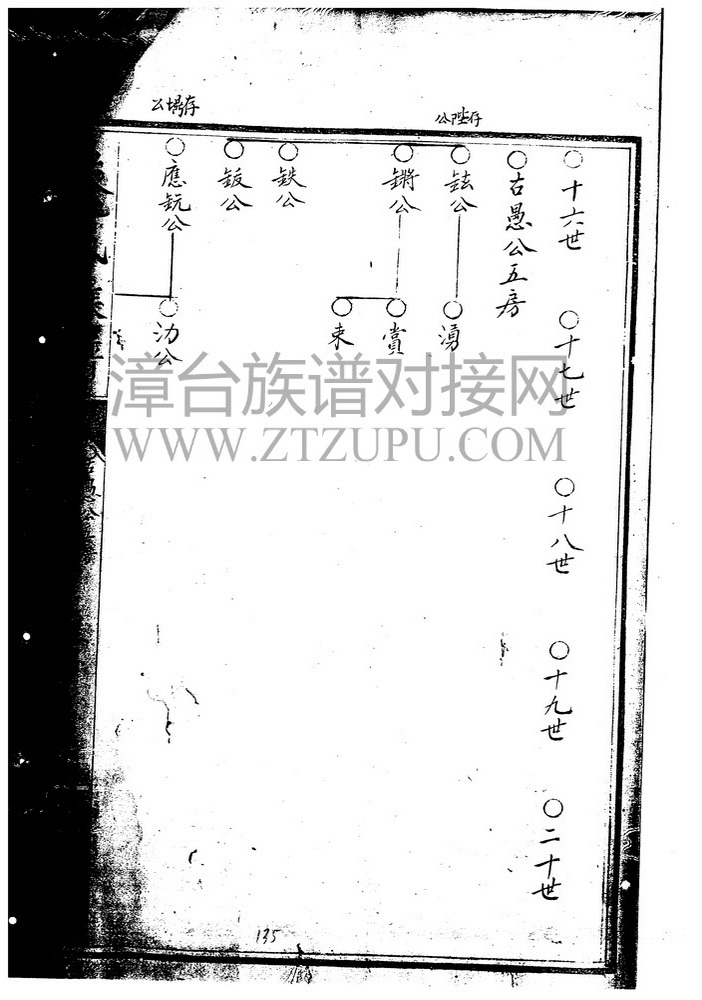 存陞公
存塲公
十六世
十七世
十八世
十九世
二十世
古愚公五房
鉉公
湧
鏘公
賞
来
鉄公
鈑公
應鈨公
沕公
漳台族谱对接网
WWW.ZTZUPU.COM
135